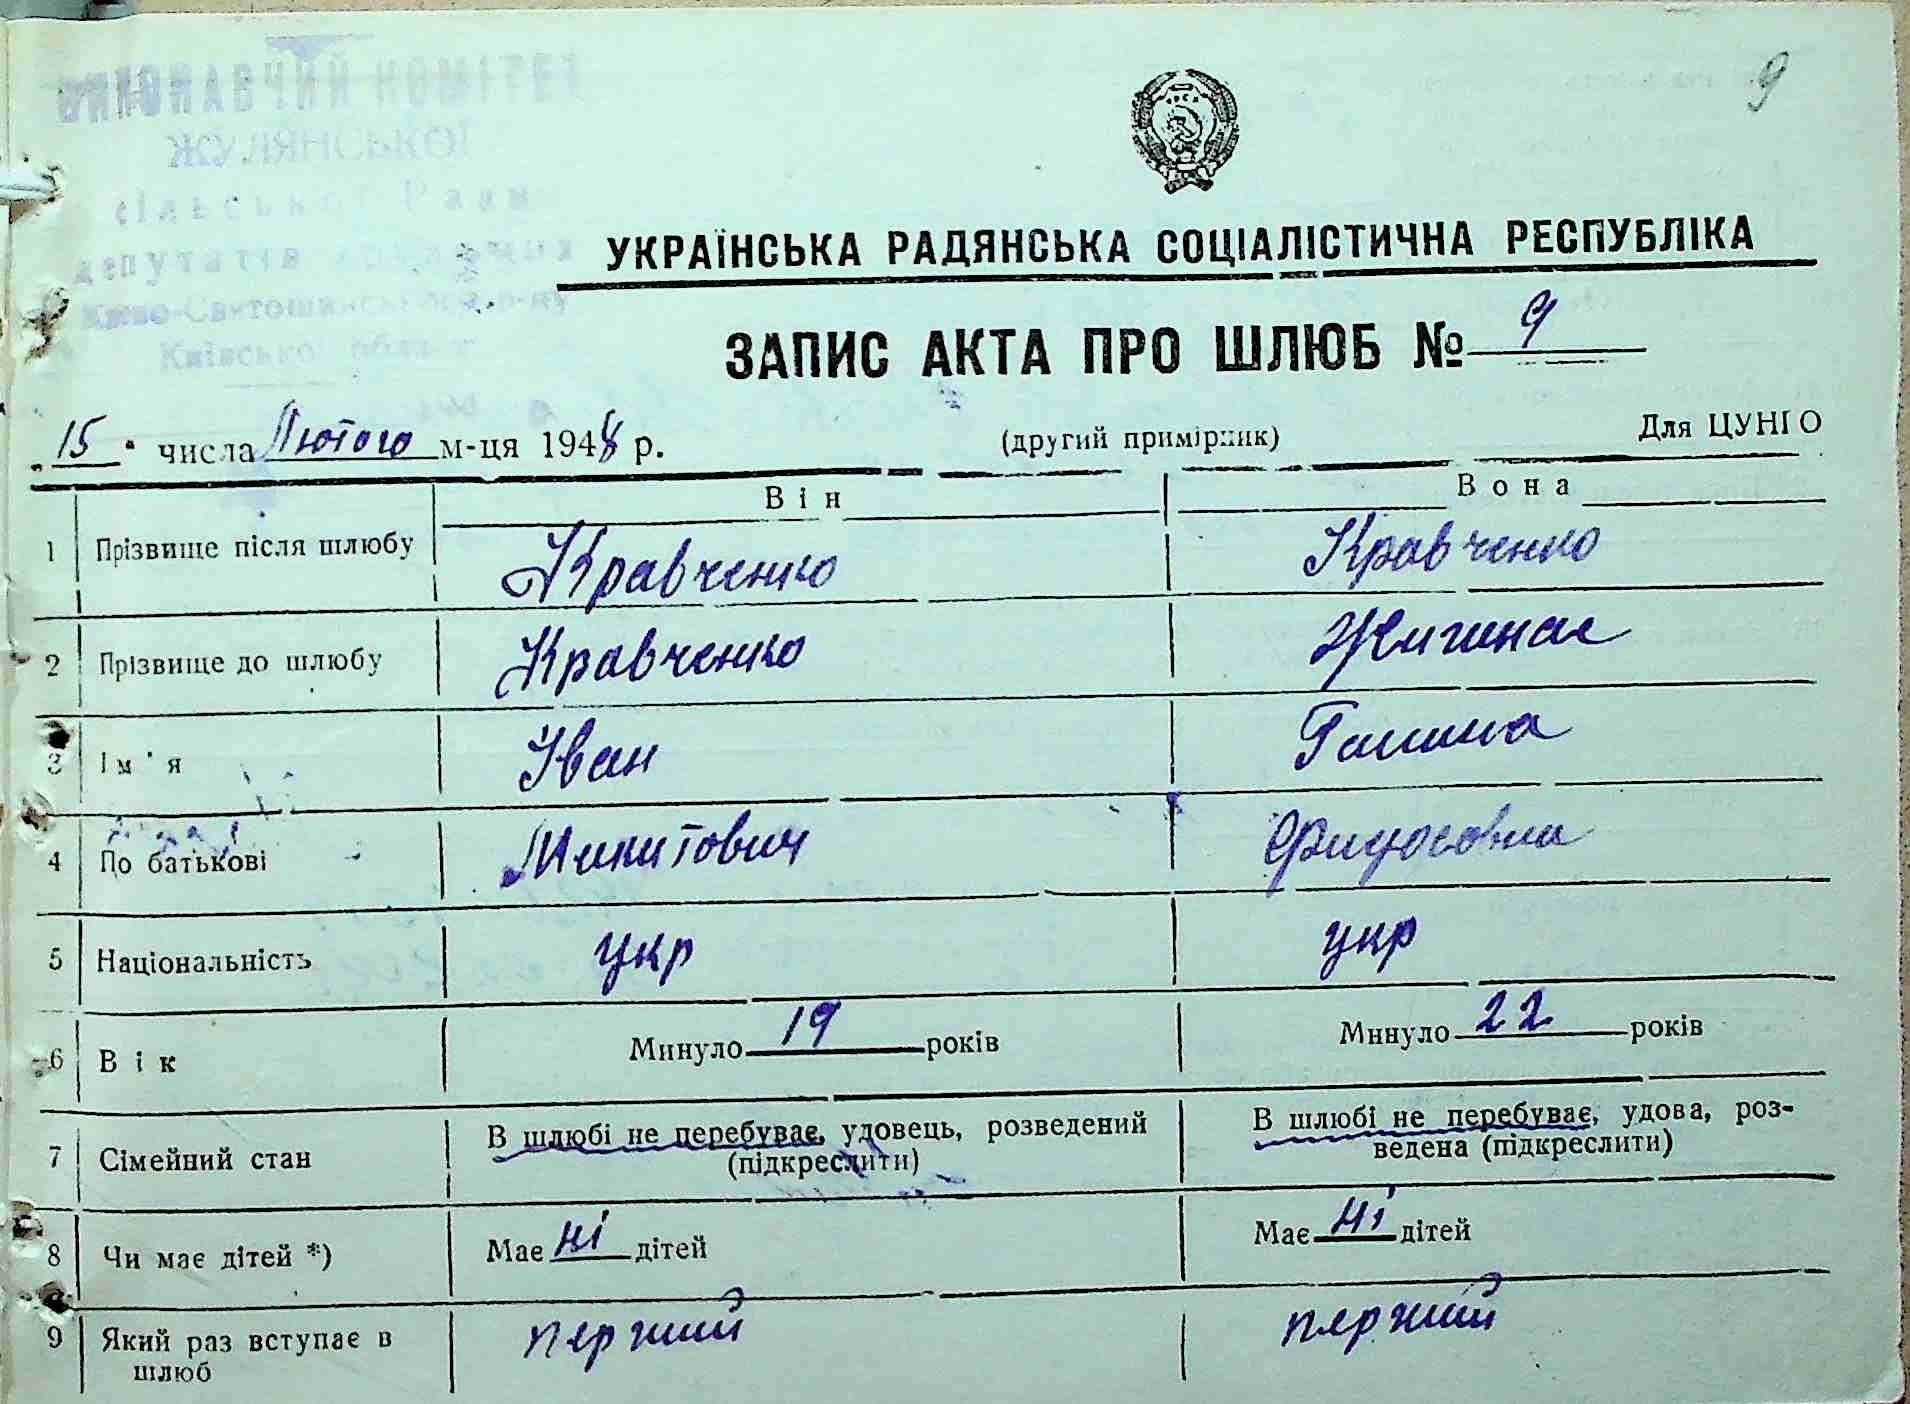 9
ВИКОНАВЧИЙ КОМІТЕТ
ЖУЛЯНСЬКОЇ
сільської Ради
депутатів трудящих
Києво-Святошинського р-ну
Київської області
УКРАЇНСЬКА РАДЯНСЬКА СОЦІАЛІСТИЧНА РЕСПУБЛІКА
ЗАПИС АКТА ПРО ШЛЮБ № 9
"15" числа Лютого м-ця 1948 р. (другий примірник) Для ЦУНГО
Він Вона
1 Прізвище після шлюбу Кравченко Кравченко
2 Прізвище до шлюбу Кравченко
3 Ім'я Іван Галина
4 По батькові Микитович
5 Національність укр укр
6 Вік Минуло 19 років Минуло 22 років
7 Сімейний стан В шлюбі не перебуває, удовець, розведений (підкреслити) В шлюбі не перебуває, удова, роз-
ведена (підкреслити)
8 Чи має дітей *) Має ні дітей Має ні дітей
9 Який раз вступає в шлюб перший перший